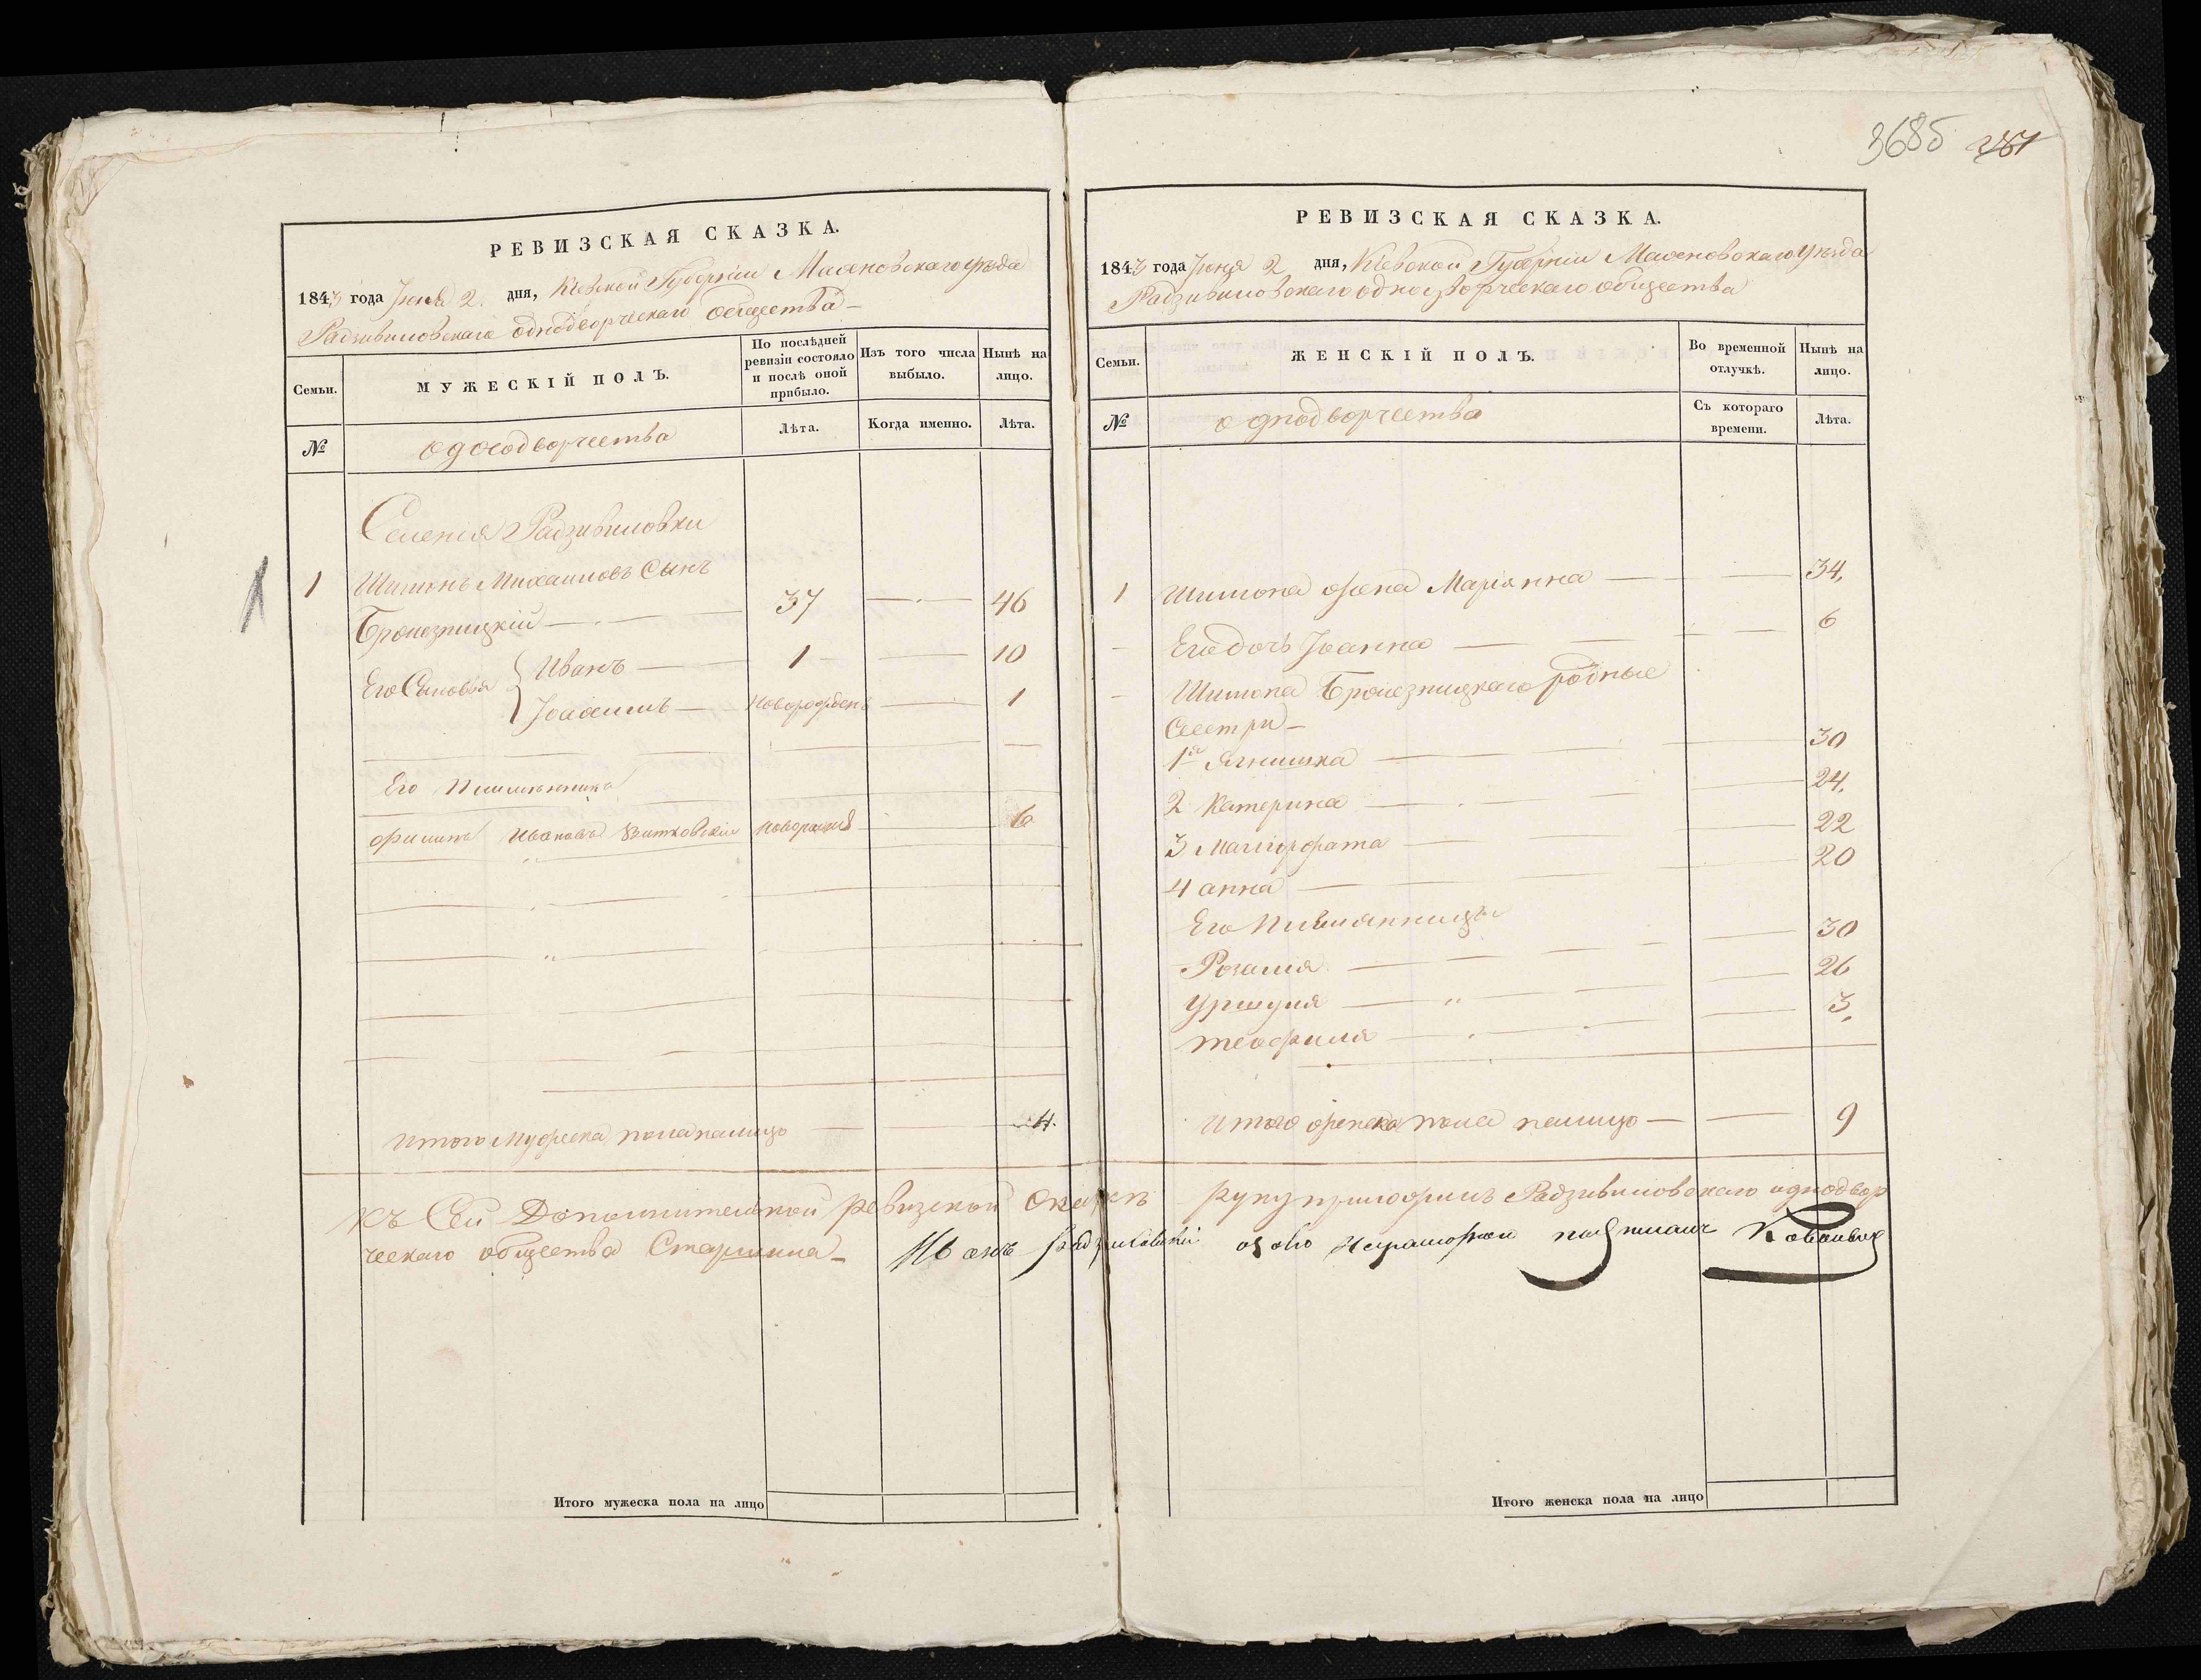 368б 281
РЕВИЗСКАЯ СКАЗКА.
1843 года Іюня 2. дня, Кіевской Губерніи Махновскаго уѣзда
Радзивиловскаго однодворческаго общества
Семьи.
МУЖЕСКІЙ ПОЛЪ.
По послѣдней ревизіи состояло и послѣ оной прибыло.
Изъ того числа выбыло.
Нынѣ на лицо.
№
однодворчества
Лѣта.
Когда именно.
Лѣта.
Селенія Радзивиловки
1
1 Шимонъ Михаиловъ Сынъ
37 46
Его Сыновья
Иванъ 1 10
Новорожденъ 1
Его Племянникъ
Филипъ Ивановъ Витковскій 6
Итого Мужеска пола налицо 4.
РЕВИЗСКАЯ СКАЗКА.
1843 года Іюня 2 дня, Кіевской Губерніи Махновскаго уѣзда
Радзивиловскаго однодворческаго общества
Семьи.
ЖЕНСКІЙ ПОЛЪ.
Во временной отлучкѣ.
Нынѣ на лицо.
№
однодворчества
Съ котораго времени.
Лѣта.
1 Шимона жена Маріянна 34.
Его дочь Іоанна 6
Шимона родные
Сестри
1я Ягнишка 30
2 Катерина 24.
3 Маргоржата 22
4 анна 20
Его Племянницы
Розалія 30
Уршуля 26
теофиля 3.
Итого женска пола налицо 9
Къ Сей Дополнительной ревизской Сказкѣ руку приложилъ Радзивиловскаго однодвор
ческаго общества Старшина Иванъ
Итого мужеска пола на лицо
Итого женска пола на лицо